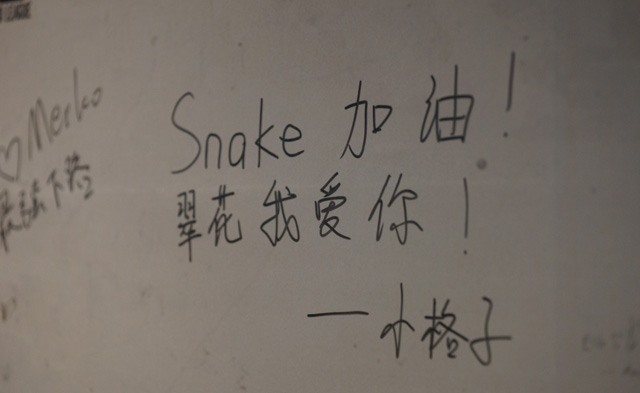 LEAGUE
Merko
Snake 加油！
翠花我爱你！
——小格子